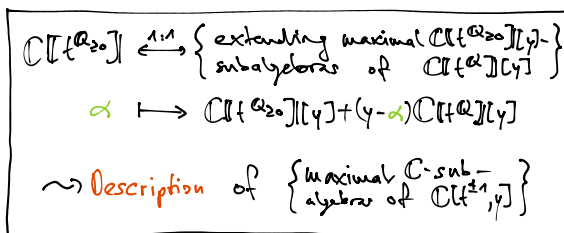 ℂ[[t^{ℚ≥0}]] ⟷^{1:1} { extending maximal ℂ[[t^{ℚ≥0}]][y]-
subalgebras of ℂ[[t^ℚ]][y] }
α ⟼ ℂ[[t^{ℚ≥0}]][y]+(y-α)ℂ[[t^ℚ]][y]
⤳ Description of { maximal ℂ-sub-
algebras of ℂ[t^{±1},y] }